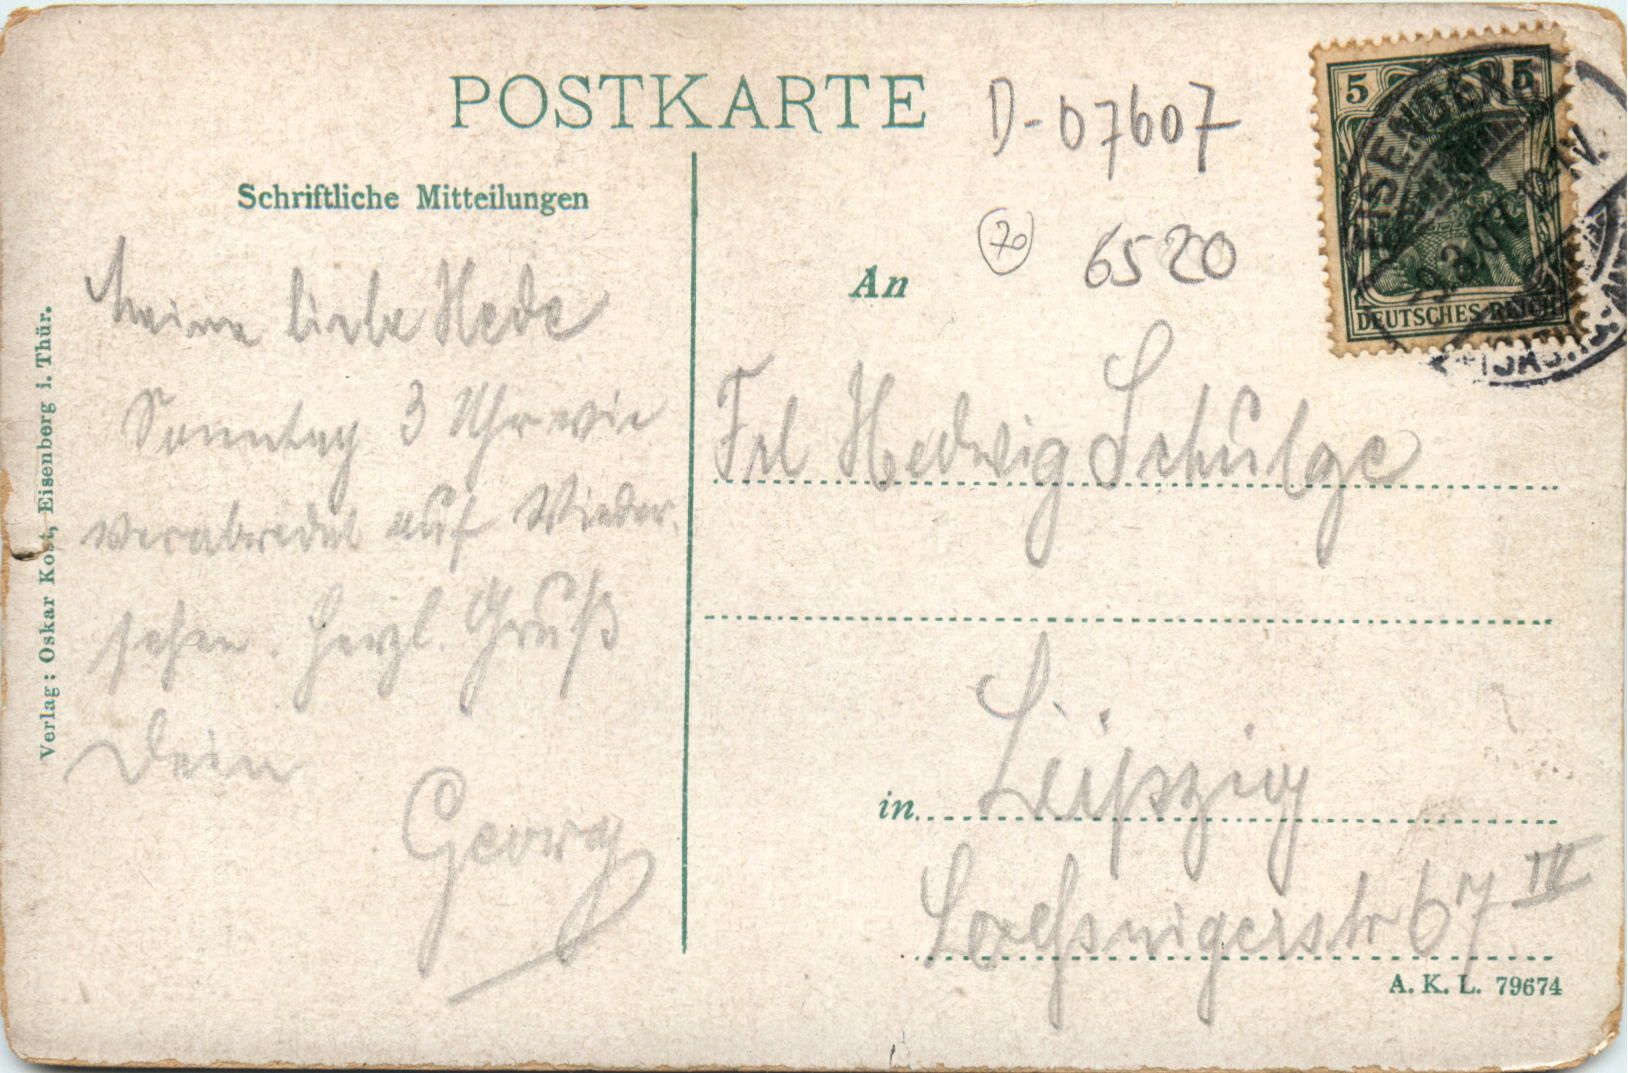 POSTKARTE
D-07607
Schriftliche Mitteilungen
An
70
6520
5 5
DEUTSCHES REICH
EISENBERG
Meine liebe Hede
Sonntag 3 Uhr wie
verabredet auf Wieder-
sehen. Herzl. Gruß
Dein
Georg
Frl Hedwig Schulze
in
Leipzig
67 IV
A. K. L. 79674
Verlag: Oskar Kost, Eisenberg i. Thür.